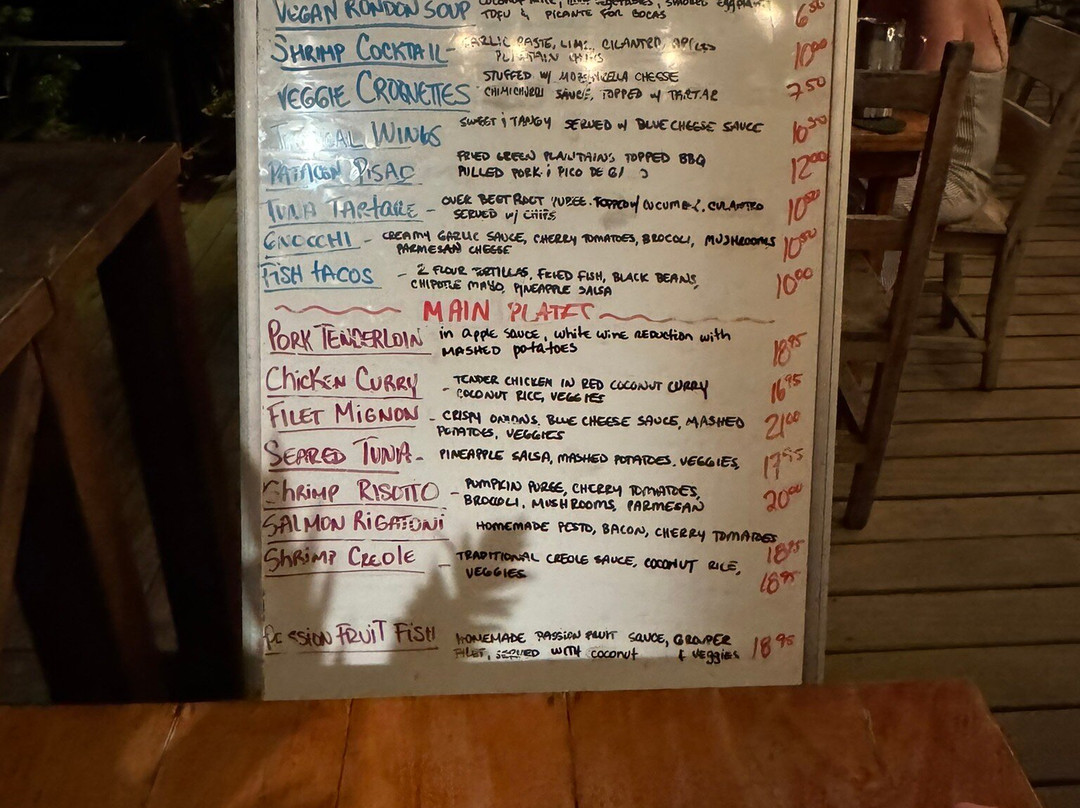 VEGAN RONDON SOUP COCONUT MILK, VEGETABLES, SMOKED EGGPLANT 6.50
TOFU & PICANTE FOR BOCAS
SHRIMP COCKTAIL - GARLIC PASTE, LIME, CILANTRO, 10.00
PLANTAIN CHIPS
VEGGIE CROQUETTES STUFFED W/ MOZZARELLA CHESSE 7.50
CHIMICHURRI SAUCE, TOPPED W TARTAR
WINGS SWEET & TANGY SERVED W BLUE CHEESE SAUCE 10.50
PATACON PISAO FRIED GREEN PLAINTAINS TOPPED BBQ 12.00
PULLED PORK & PICO DE
TUNA TARTARE - OVER BEETROOT TOPPED W/ CULANTRO 10.00
SERVED W/
GNOCCHI - CREAMY GARLIC SAUCE, CHERRY TOMATOES, BROCOLI, MUSHROOMS 10.50
PARMESAN CHEESE
FISH TACOS - 2 FLOUR TORTILLAS, FRIED FISH, BLACK BEANS, 10.00
CHIPOTLE MAYO, PINEAPPLE SALSA
MAIN PLATES
PORK TENDERLOIN in apple sauce, white wine reduction with 18.95
MASHED potatoes
CHICKEN CURRY - TENDER CHICKEN IN RED COCONUT CURRY 16.95
COCONUT RICE, VEGGIES
FILET MIGNON - CRISPY ONIONS, BLUE CHEESE SAUCE, MASHED 21.00
POTATOES, VEGGIES
SEARED TUNA - PINEAPPLE SALSA, MASHED POTATOES, VEGGIES, 17.95
SHRIMP RISOTTO - PUMPKIN PUREE, CHERRY TOMATOES, 20.00
BROCOLI, MUSHROOMS, PARMESAN
SALMON RIGATONI HOMEMADE PESTO, BACON, CHERRY TOMATOES 18.95
SHRIMP CREOLE - TRADITIONAL CREOLE SAUCE, COCONUT RICE, 18.95
VEGGIES
PASSION FRUIT FISH HOMEMADE PASSION FRUIT SAUCE, GROUPER 18.95
FILET, SERVED WITH coconut & veggies